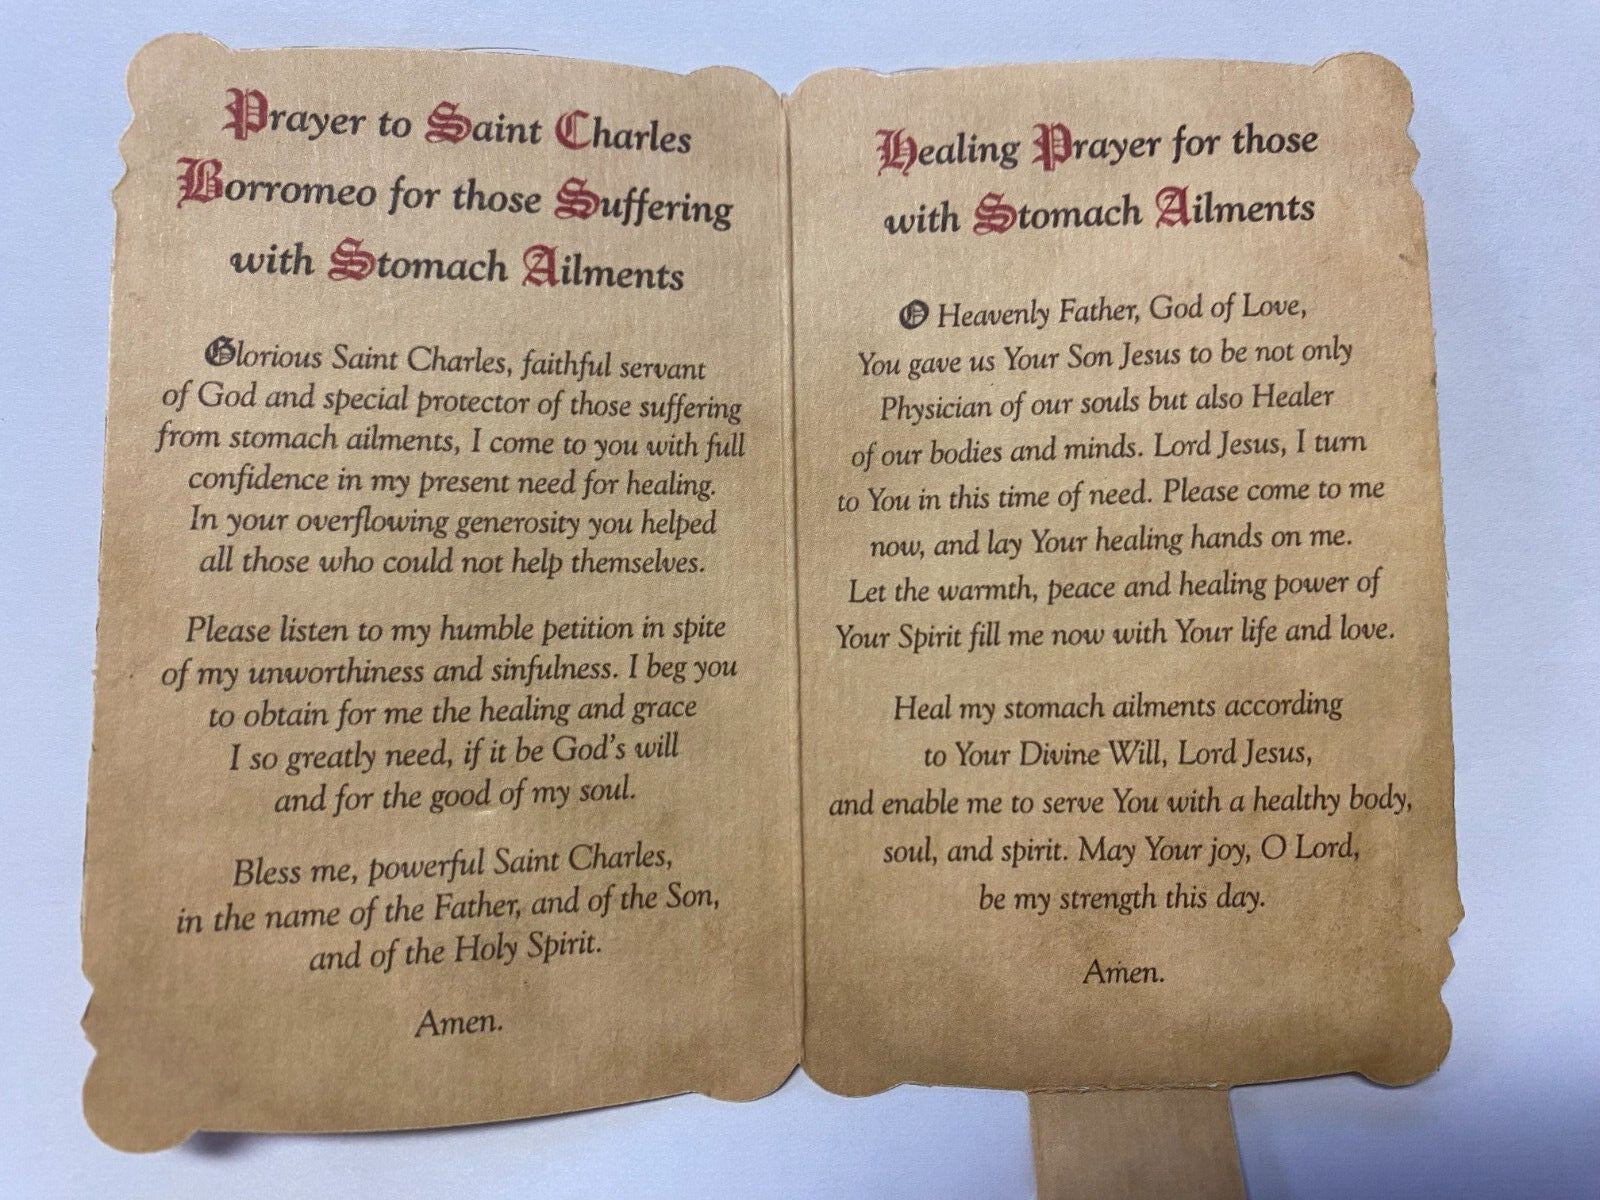 Prayer to Saint Charles
Borromeo for those Suffering
with Stomach Ailments
Glorious Saint Charles, faithful servant
of God and special protector of those suffering
from stomach ailments, I come to you with full
confidence in my present need for healing.
In your overflowing generosity you helped
all those who could not help themselves.
Please listen to my humble petition in spite
of my unworthiness and sinfulness. I beg you
to obtain for me the healing and grace
I so greatly need, if it be God's will
and for the good of my soul.
Bless me, powerful Saint Charles,
in the name of the Father, and of the Son,
and of the Holy Spirit.
Amen.
Healing Prayer for those
with Stomach Ailments
O Heavenly Father, God of Love,
You gave us Your Son Jesus to be not only
Physician of our souls but also Healer
of our bodies and minds. Lord Jesus, I turn
to You in this time of need. Please come to me
now, and lay Your healing hands on me.
Let the warmth, peace and healing power of
Your Spirit fill me now with Your life and love.
Heal my stomach ailments according
to Your Divine Will, Lord Jesus,
and enable me to serve You with a healthy body,
soul, and spirit. May Your joy, O Lord,
be my strength this day.
Amen.